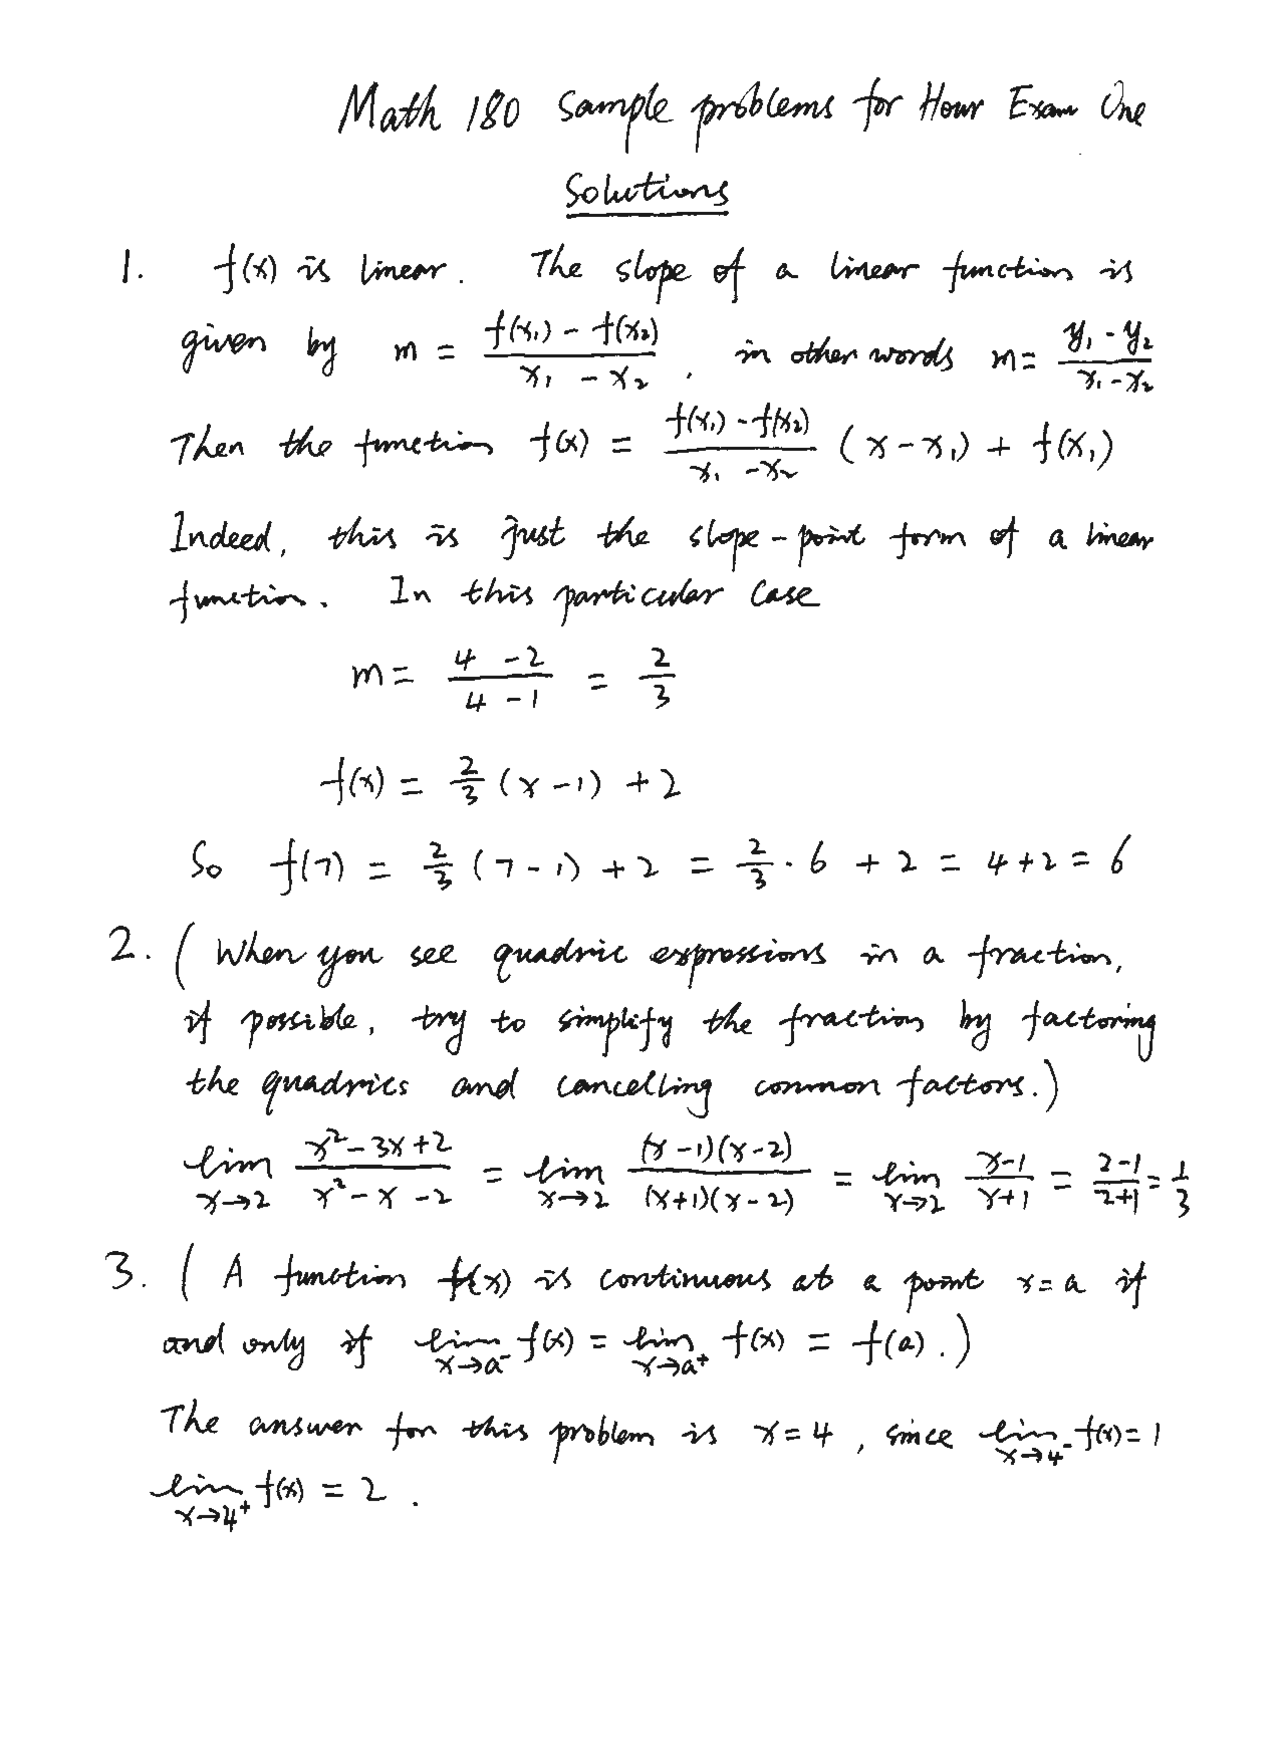 Math 180 Sample problems for Hour Exam One
Solutions
1. f(x) is linear. The slope of a linear function is
given by m = \frac{f(x₁) - f(x₂)}{x₁ - x₂}, in other words m = \frac{y₁ - y₂}{x₁ - x₂}
Then the function f(x) = \frac{f(x₁) - f(x₂)}{x₁ - x₂} (x - x₁) + f(x₁)
Indeed, this is just the slope-point form of a linear
function. In this particular case
m = \frac{4 - 2}{4 - 1} = \frac{2}{3}
f(x) = \frac{2}{3} (x - 1) + 2
So f(7) = \frac{2}{3} (7 - 1) + 2 = \frac{2}{3} · 6 + 2 = 4 + 2 = 6
2. (When you see quadric expressions in a fraction,
if possible, try to simplify the fraction by factoring
the quadrics and cancelling common factors.)
\lim_{x→2} \frac{x² - 3x + 2}{x² - x - 2} = \lim_{x→2} \frac{(x - 1)(x - 2)}{(x + 1)(x - 2)} = \lim_{x→2} \frac{x - 1}{x + 1} = \frac{2 - 1}{2 + 1} = \frac{1}{3}
3. (A function f(x) is continuous at a point x = a if
and only if \lim_{x→a⁻} f(x) = \lim_{x→a⁺} f(x) = f(a).)
The answer for this problem is x = 4, since \lim_{x→4⁻} f(x) = 1
\lim_{x→4⁺} f(x) = 2.